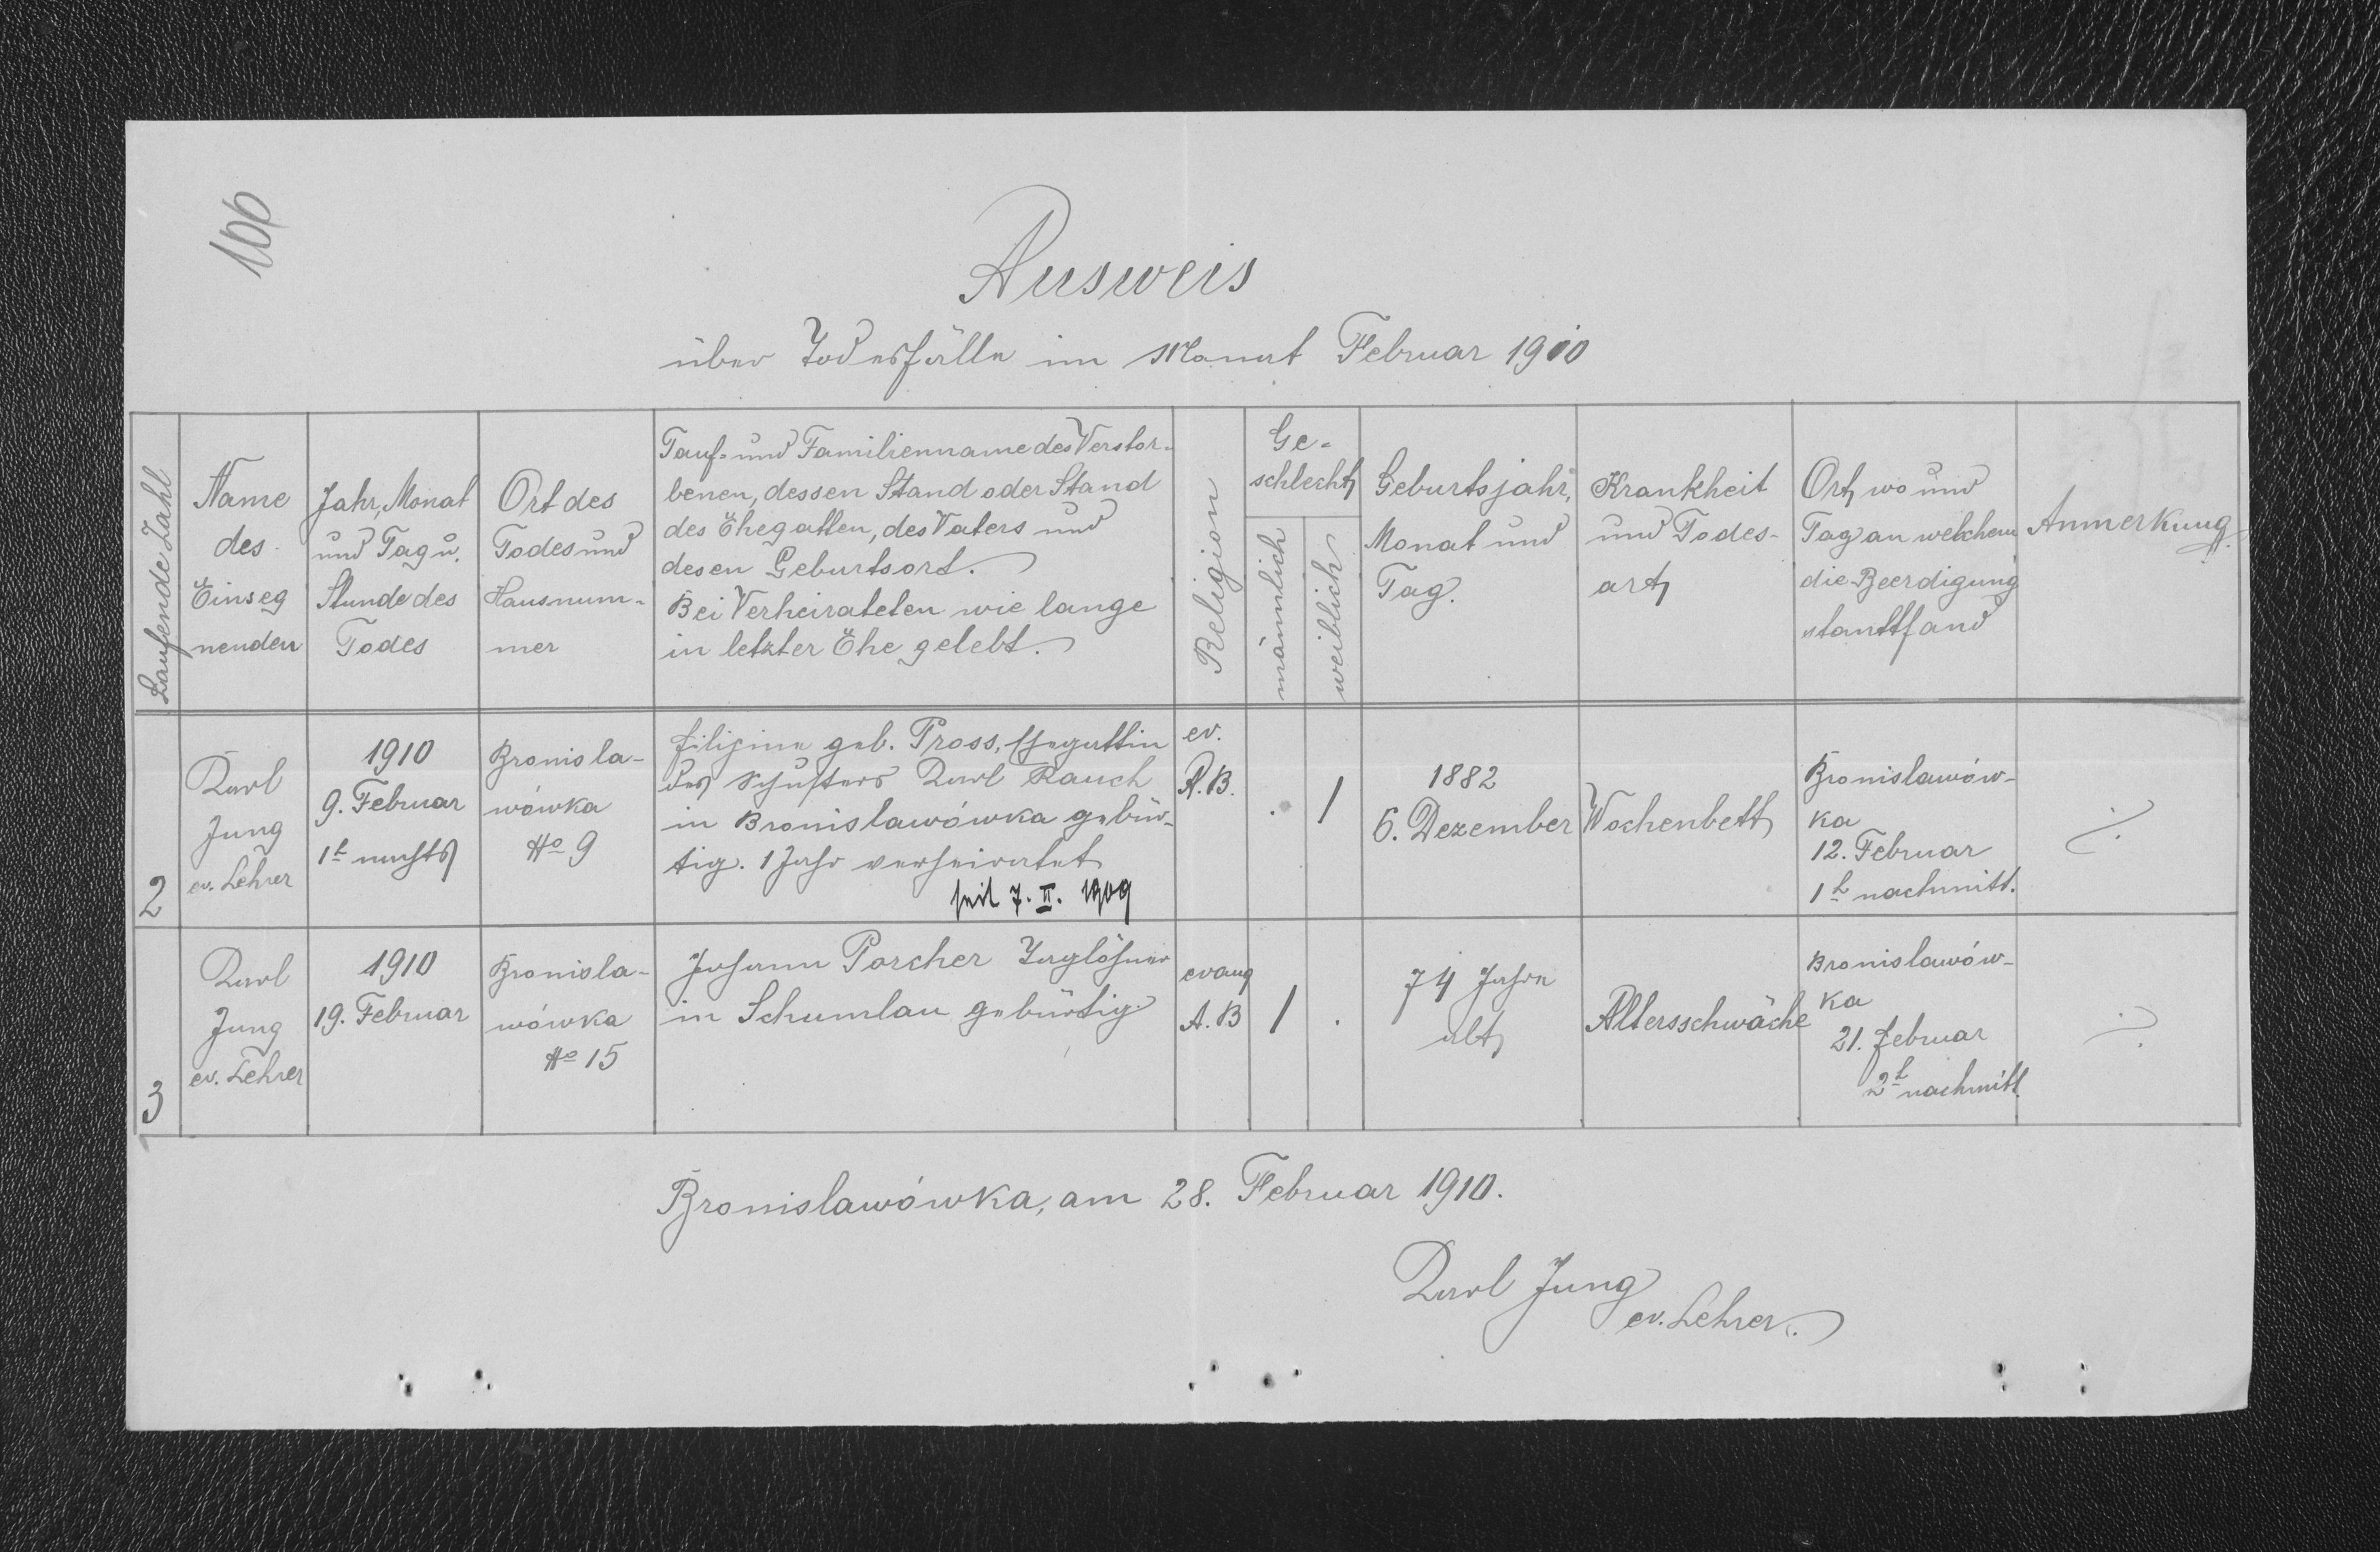 100
Ausweis
über Todesfälle im Monat Februar 1910
Laufende Zahl
Name
des
Einseg
nenden
Jahr, Monat
und Tag u.
Stunde des
Todes
Ort des
Todes und
Hausnum-
mer
Tauf- und Familienname des Verstor-
benen, dessen Stand oder Stand
des Ehegatten, des Vaters und
desen Geburtsort.
Bei Verheirateten wie lange
in letzter Ehe gelebt.
Religion
Ge-
schlecht
männlich
weiblich
Geburtsjahr,
Monat und
Tag.
Krankheit
und Todes-
art
Ort, wo und
Tag an welchem
die Beerdigung
stanttfand
Anmerkung
2
Karl
Jung
ev. Lehrer
1910
9. Februar
1h nachts
Bronisla-
wówka
No 9
Filipine geb. Pross, Ehegattin
des Schusters Karl Rauch
in Bronislawówka gebür-
tig. 1 Jahr verheiratet
seit 7. II. 1909
ev.
A.B.
. 1
1882
6. Dezember
Wochenbett
Bronislawów-
ka
12. Februar
1h nachmitt.
3
Karl
Jung
ev. Lehrer
1910
19. Februar
Bronisla-
wówka
No 15
Johann Porcher Taglöhner
in Schumlau gebürtig
evang
A.B
1 .
74 Jahre
alt
Altersschwäche
Bronislawów-
ka
21. Februar
2h nachmitt.
Bronislawówka, am 28. Februar 1910.
Karl Jung
ev. Lehrer.